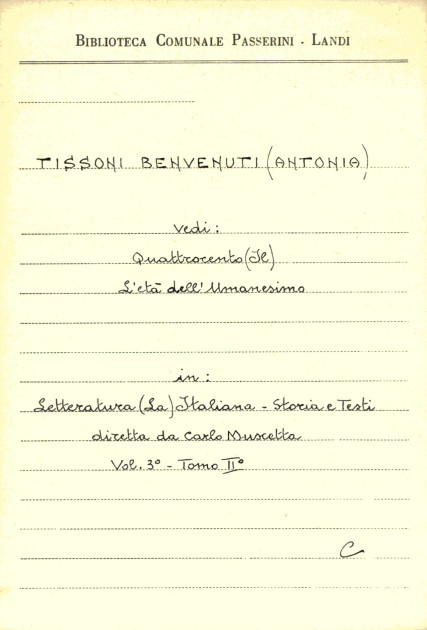 BIBLIOTECA COMUNALE PASSERINI - LANDI
TISSONI BENVENUTI (ANTONIA)
vedi:
Quattrocento (Il)
L'età dell'Umanesimo
in:
Letteratura (La) Italiana - Storia e Testi
diretta da Carlo Muscetta
Vol. 3º - Tomo IIº
C